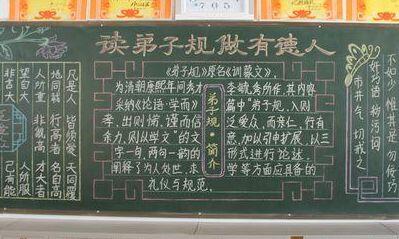 读弟子规做有德人
《弟子规》原名《训蒙文》,
为清朝康熙年间秀才 李毓秀所作,其内容
采纳《论语·学而》 篇中"弟子规,入则
孝,出则悌,谨而信, 泛爱众,而亲仁,行有
余力,则以学文"的文 意,加以引申扩展,以三
字一句,两句一韵的 形式进行论述,
阐释了为人处世、求 学等方面应具备的
礼仪与规范。
弟子规·简介
凡是人 皆须爱 天同覆
地同载 行高者 名自高
人所重 非貌高 才大者
望自大 人所服
非言大 己有能
不如少 惟其是 勿佞巧
奸巧语 秽污词
市井气 切戒之